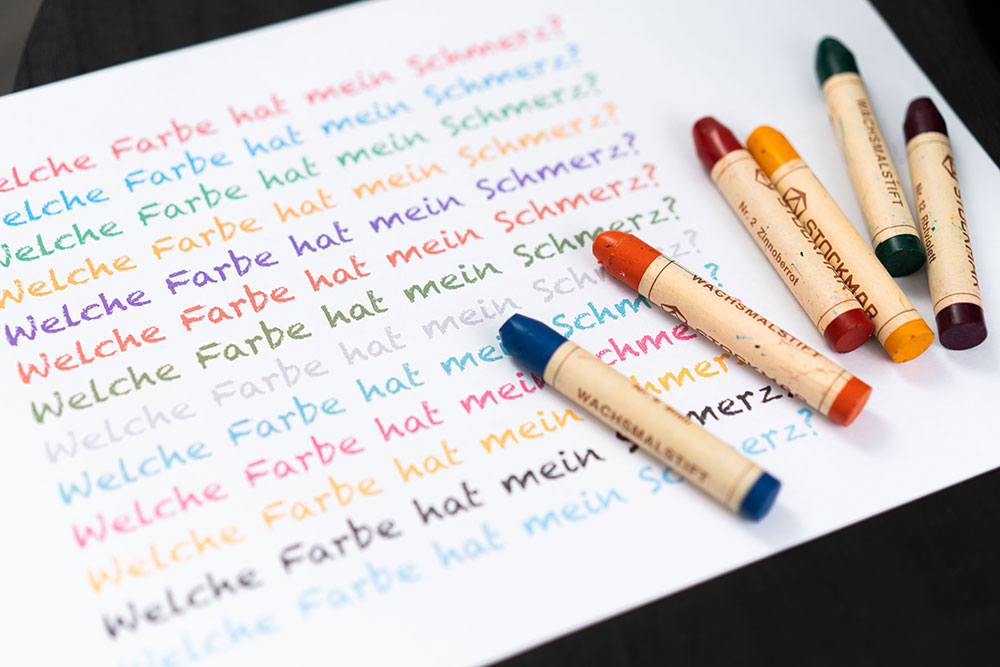 elche Farbe hat mein Schmerz?
Welche Farbe hat mein Schmerz?
Welche Farbe hat mein Schmerz?
Welche Farbe hat mein Schmerz?
Welche Farbe hat mein Schmerz?
Welche Farbe hat mein Schmerz?
Welche Farbe hat mein Schmerz?
Welche Farbe hat mein Schmerz?
Welche Farbe hat mein Schm ?
Welche Farbe hat mein Schmerz
Welche Farbe hat mein chmer
Welche Farbe hat mein merz?
Welche Farbe hat mein Schmerz?
WACHSMALSTIFT
STOCKMAR
Nr. 2 Zinnoberrot
WACHSMALSTIFT
WACHSMALSTIFT